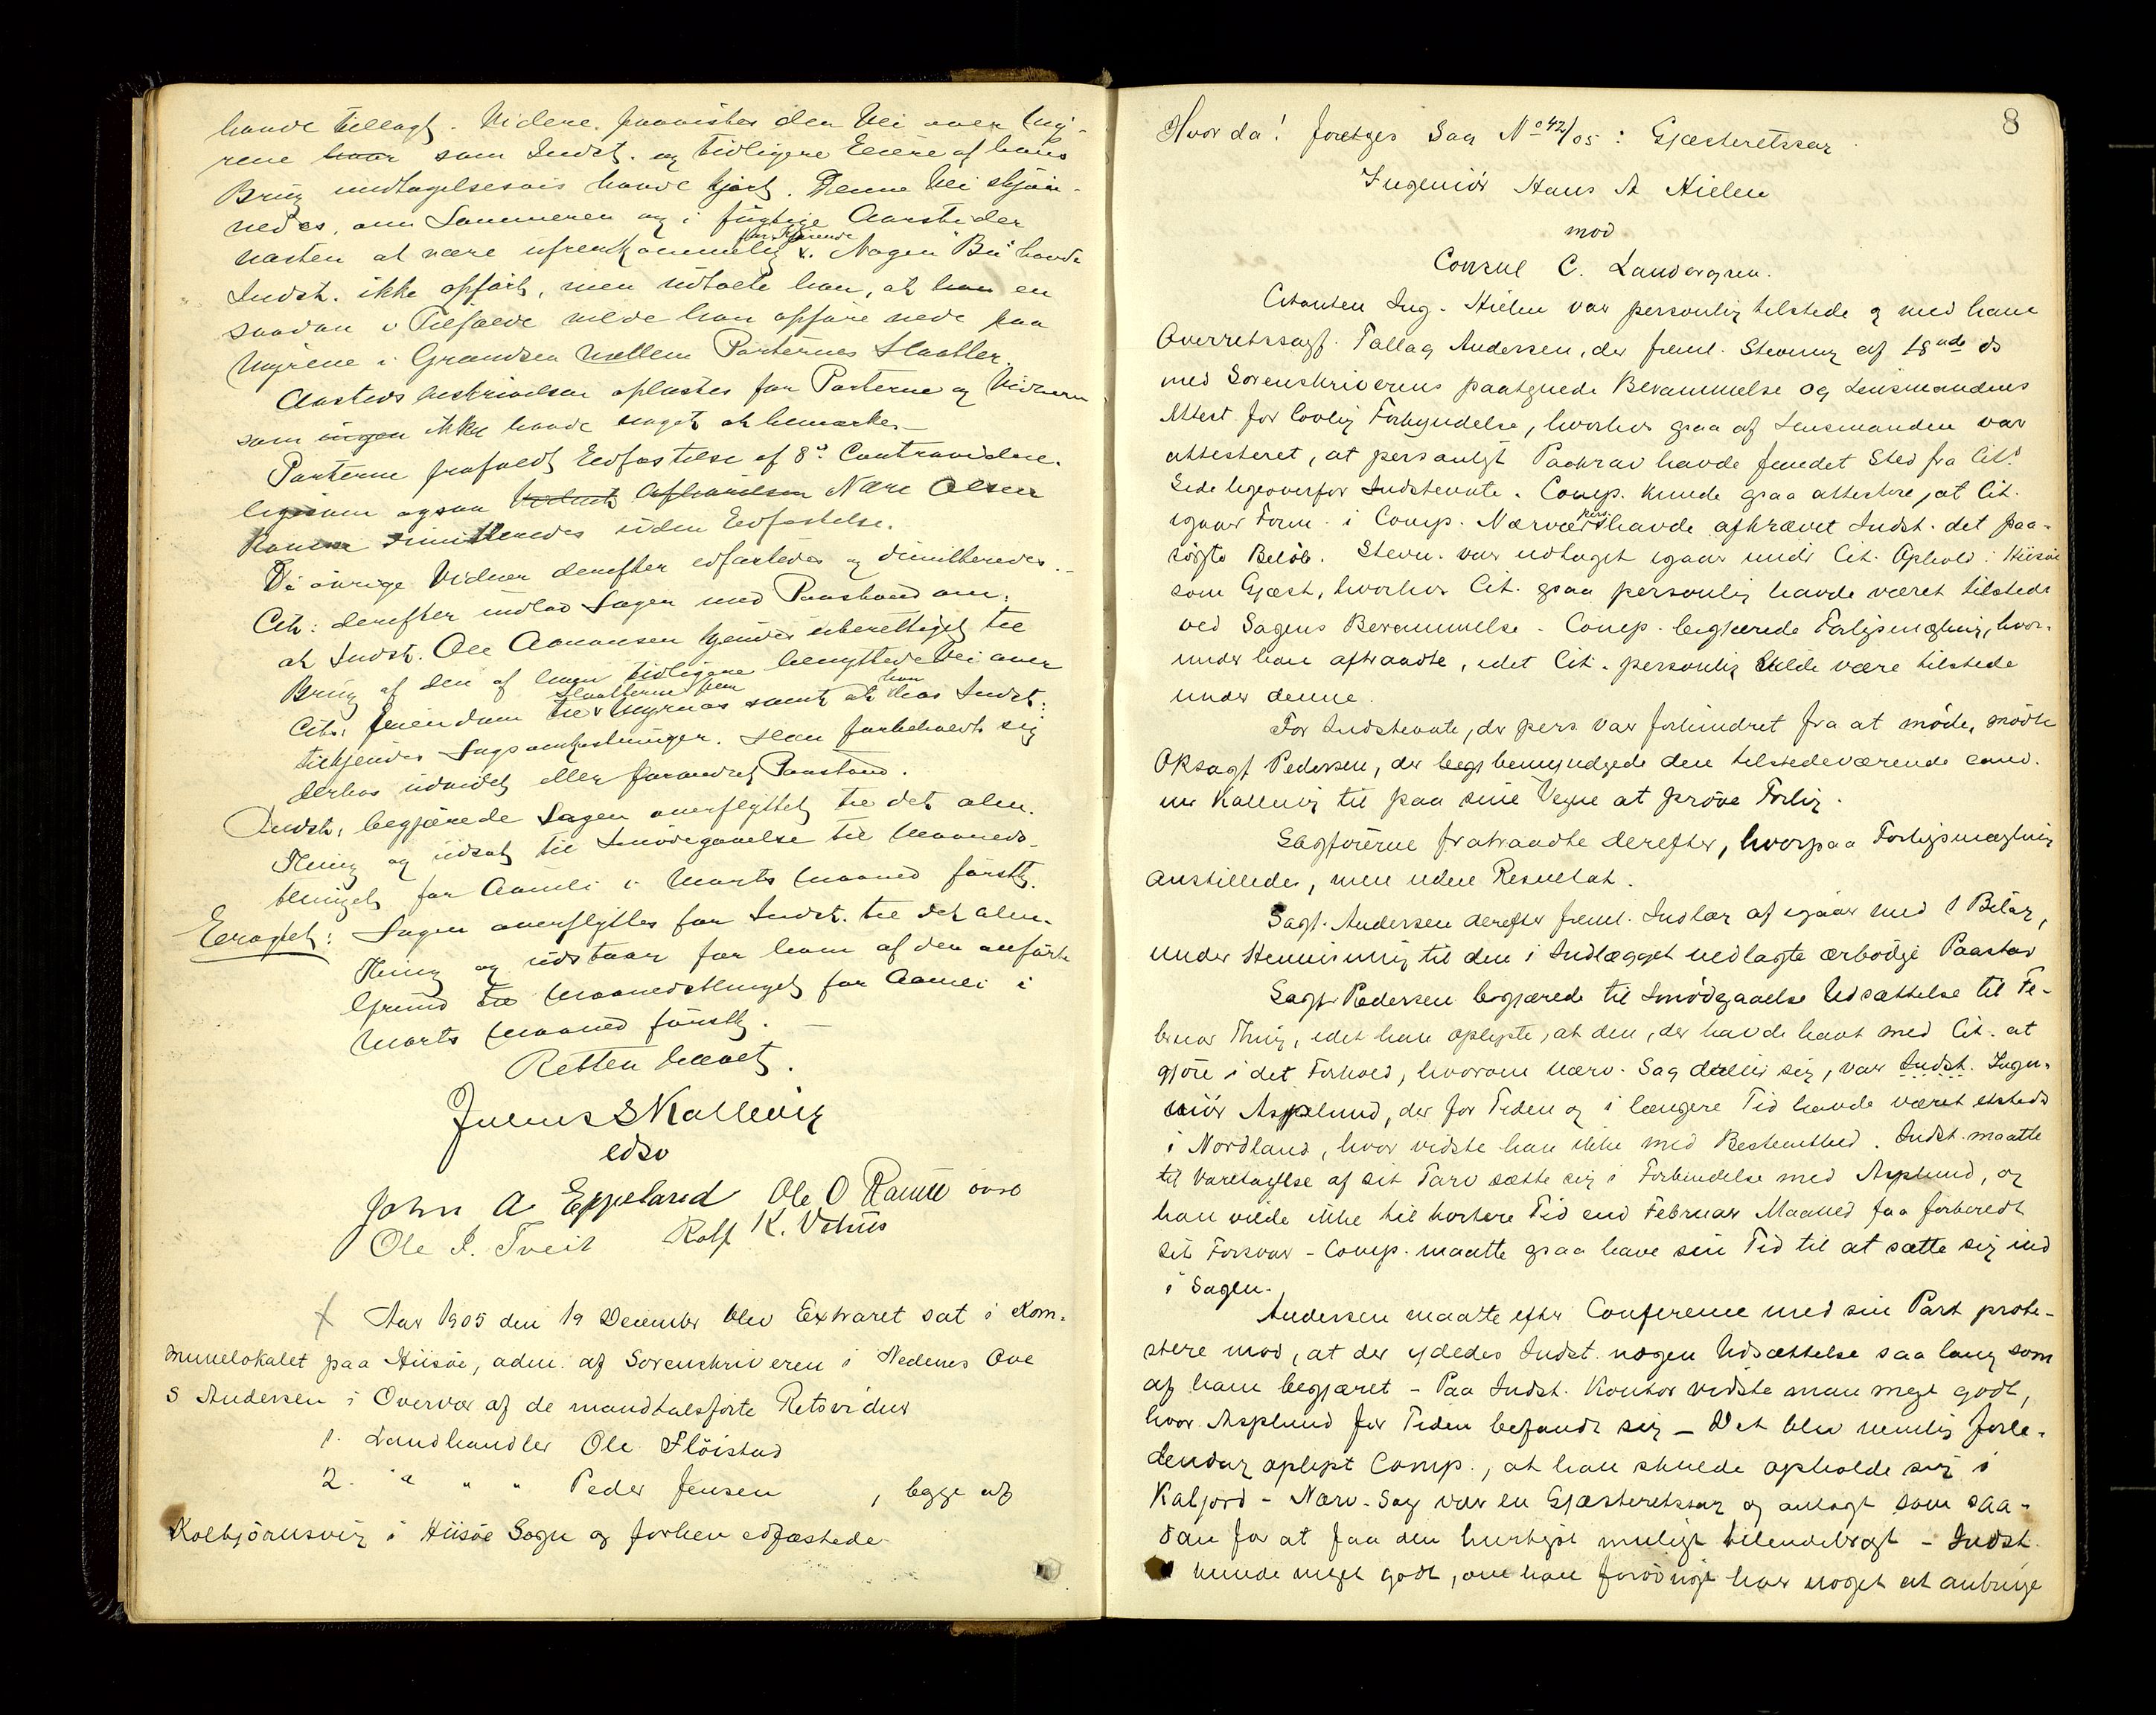 havde tillagt. Videre paavistes den Vei over Myr-
rene hvor som Indst. og tidligere Eiere af hans
Brug undtagelsesvis havde kjørt. Denne Vei skjøn-
nedes, om Sommeren og i fugtige Aarstider
næsten at være ufremkommelig for Kjørende. Nogen "Bu" havde
Indst. ikke opført, men udtalte han, at han en
saadan i Tilfælde vilde han opføre nede paa
Myrene i Grændsen mellem Parternes Slaatter.
Aastedsbeskrivelsen oplæstes for Parterne og Vidnerne
som ingen ikke havde noget at bemærke.
Parterne frafaldt Edfæstelse af 8de Contravidne.
ligesom ogsaa Vidnet Afhørelsen Nære Olsen
Konen dimitteredes uden Edfæstelse.
De øvrige Vidner derefter edfæstedes og dimitteredes.
Cit: derefter indlod Sagen med Paastand om,
at Indst. Ole Aanonsen kjendes uberettiget til
Brug af den af ham tidligere benyttede Vei over
Cits: Eiendom til Slaatterne paa Myrnos samt at han hos Indst:
tilkjendes Sagsomkostninger. Han forbeholdt sig
derhos udvidet eller forandret Paastand.
Indst: begjærede Sagen overflyttet til det alm.
Thing og udsat til Imødegaaelse til Maaneds-
thinget for Aamli i Marts Maaned førstk.
Eragtet: Sagen overflyttes for Indst. til det alm.
Thing og udstaar for ham af den anførte
Grund til Maanedsthinget for Aamli i
Marts Maaned førstk.
Retten hævet.
Julius S Kallevig
edsv
John A Eppeland Ole O Ramse
Ole I. Tveit Rolf K. Vehus
Aar 1905 den 19 December blev Extraret sat i Kom-
munelokalet paa Hiisøe, adm. af Sorenskriveren i Nedenes Ove
S Andersen i Overvær af de mandtalsførte Retsvidner
1. Landhandler Ole Fløistad
2. " " " Peder Jensen , begge af
Kolbjørnsvig i Hiisøe Sogn og forhen edfæstede
8
Hvor da! foretoges Sag No 42/05: Gjæsteretssag
Ingeniør Hans A Nielsen
mod
Consul C. Landergren.
Citanten Ing. Nielsen var personlig tilstede og med ham
Overretssagf. Tallag Andersen, der freml. Stevning af 18de ds
med Sorenskriverens paategnede Berammelse og Lensmandens
Attest for lovlig Forkyndelse, hvorhos ogsaa af Lensmanden var
attesteret, at personligt Paakrav havde fundet Sted fra Cits
Side ligeoverfor Indstevnte. Comp. kunde ogsaa attestere, at Cit.
igaar Form. i Comp. Nærvær pers. havde afkrævet Indst. det paa-
søgte Beløb. Stevn. var udtaget igaar under Cit. Ophold i Hiisøe
som Gjæst, hvorhos Cit. ogsaa personlig havde været tilstede
ved Sagens Berammelse. Comp. begjærede Forligsmægling, hvor-
under han aftraadte, idet Cit. personlig vilde være tilstede
under denne.
For Indstevnte, der pers. var forhindret fra at møde, mødte
ORsagf Pedersen, der begj bemyndigede den tilstedeværende cand.
jur Kallevig til paa sine Vegne at prøve Forlig.
Sagførerne fratraadte derefter, hvorpaa Forligsmægling
anstilledes, men uden Resultat.
Sagf. Andersen derefter freml. Indlæg af igaar med 1 Bilag,
under Henvisning til den i Indlægget nedlagte ærbødige Paastand
Sagf. Pedersen begjærede til Imødegaaelse Udsættelse til Fe-
bruar Thing, idet han oplyste, at den, der havde havt med Cit. at
gjøre i det Forhold, hvorom nærv. Sag dreier sig, var Indst. Inge-
niør Asplund, der for Tiden og i længere Tid havde været etsteds
i Nordland, hvor vidste han ikke med Bestemthed. Indst. maatte
til Varetagelse af sit Tarv sætte sig i Forbindelse med Asplund, og
han vilde ikke til kortere Tid end Februar Maaned faa forberedt
sit Forsvar - Comp. maatte ogsaa have sin Tid til at sætte sig ind
i Sagen.
Andersen maatte efter Conference med sin Part prote-
stere mod, at der ydedes Indst. nogen Udsættelse saa lang som
af ham begjæret - Paa Indst. Kontor vidste man meget godt,
hvor Asplund for Tiden befandt sig - Det blev nemlig forle-
dendag oplyst Comp., at han skulde opholde sig i
Kalfjord - Nærv. Sag var en Gjæsteretssag og anlagt som saa-
dan for at faa den hurtigst muligt tilendebragt - Indst.
kunde meget godt, om han forøvrigt har noget at anbringe